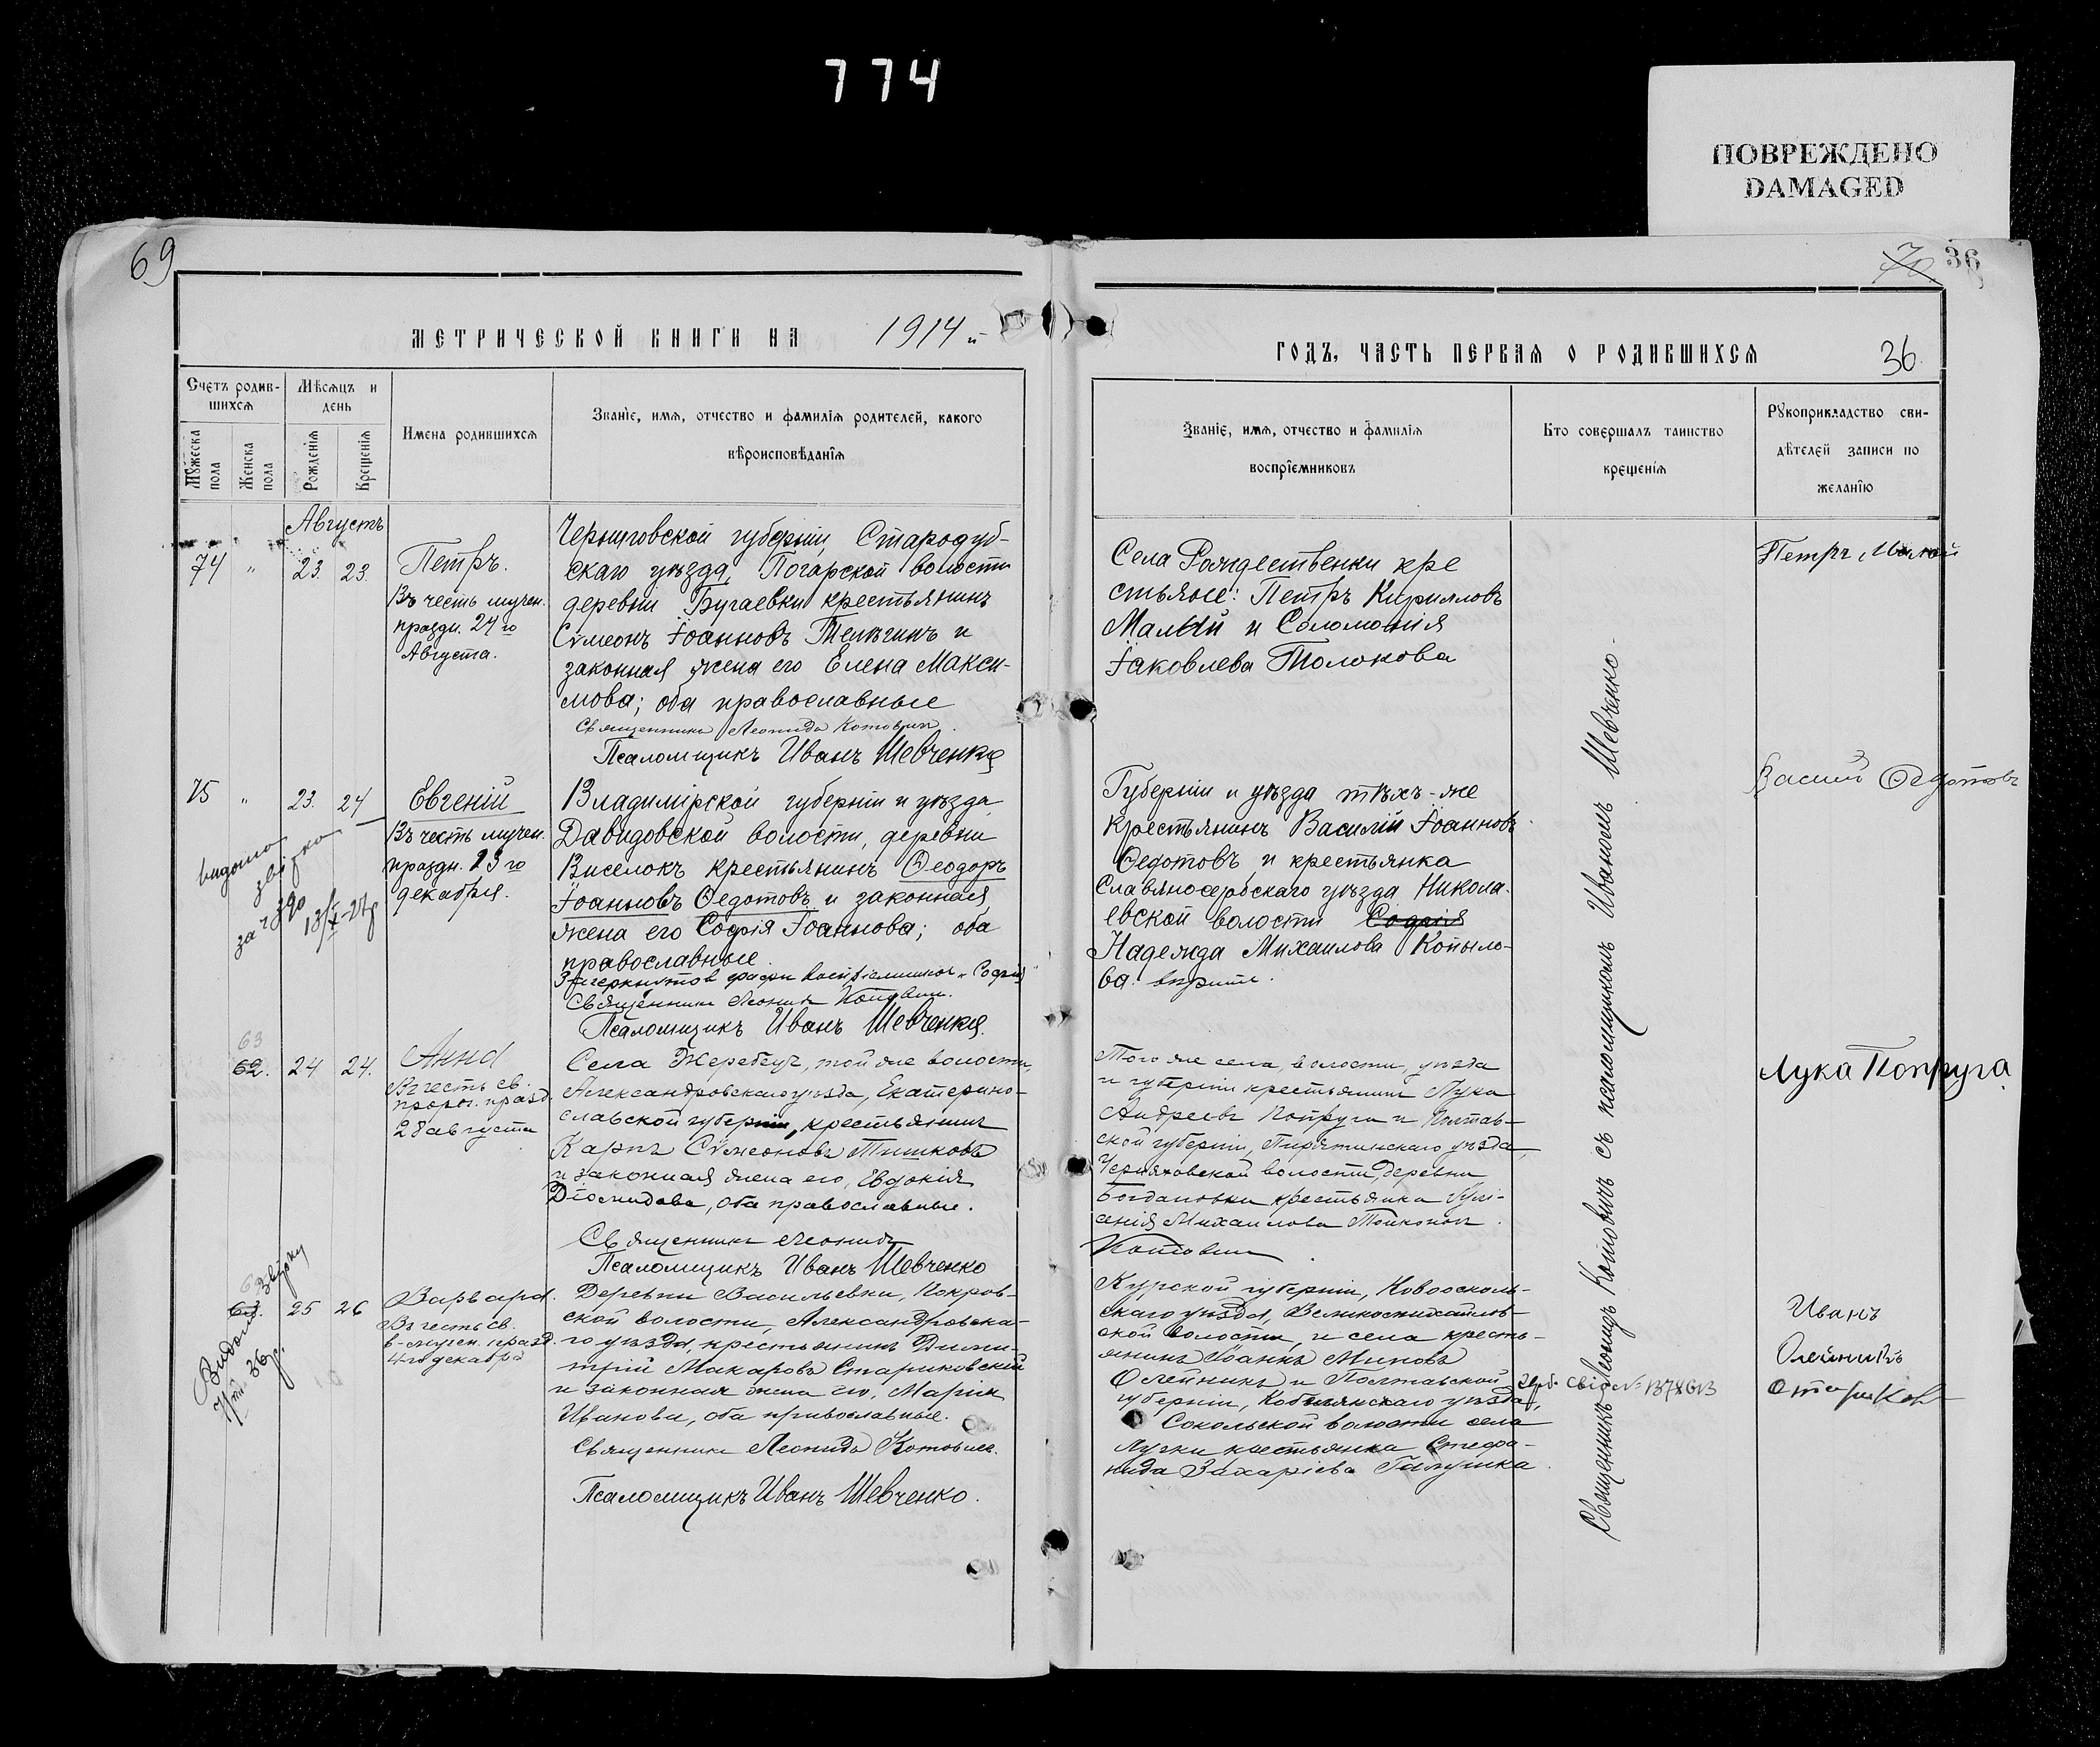 774
ПОВРЕЖДЕНО
DAMAGED
69
МЕТРИЧЕСКОЙ КНИГИ НА 1914 й
Счетъ родив-
шихся
Мѣсяцъ и
день
Мужеска
пола
Женска
пола
Рожденія
Крещенія
Имена родившихся
Званіе, имя, отчество и фамилія родителей, какого
вѣроисповѣданія
Августъ
74 " 23. 23.
Петръ.
Въ честь мучен.
праздн. 24 го
Августа.
Черниговской губерніи, Стародуб-
скаго уѣзда, Погарской волости
деревни Бугаевки крестьянинъ
Сѵмеонъ Іоанновъ Телѣгинъ и
законная жена его Елена Макси-
мова; оба православные
Священникъ Леонидъ Котовичъ.
Псаломщикъ Иванъ Шевченко
75 " 23. 24
Евгеній
Въ честь мучен.
праздн. 13 го
декабря.
видано
за № 390
Владимірской губерніи и уѣзда,
Давидовской волости, деревни
Виселокъ крестьянинъ Ѳеодоръ
Іоанновъ Ѳедотовъ и законная
жена его Софія Іоаннова; оба
православные.
"Софія"
Священникъ Леонидъ Котовичъ.
Псаломщикъ Иванъ Шевченко.
63
62. 24 24.
Анна
Въ честь св.
прор. празд.
28 августа
Села Жеребецъ, той же волости,
Александровскаго уѣзда, Екатерино-
славской губерніи, крестьянинъ
Карпъ Сѵмеоновъ Тишковъ
и законная жена его, Евдокія
Діомидова, оба православные.
Священникъ Леонидъ
Псаломщикъ Иванъ Шевченко
63. 25 26
Варвара.
Въ честь св.
в-мучен. празд.
4 го декабря
Видано
36 р.
Деревни Васильевки, Покров-
ской волости, Александровска-
го уѣзда, крестьянинъ Дими-
трій Макаровъ Стариковскій
и законная жена его, Марія
Иванова, оба православные.
Священникъ Леонидъ Котовичъ.
Псаломщикъ Иванъ Шевченко.
70 36
ГОДЪ, ЧАСТЬ ПЕРВАЯ О РОДИВШИХСЯ
36
Званіе, имя, отчество и фамилія
воспріемниковъ
Кто совершалъ таинство
крещенія
Рукоприкладство сви-
дѣтелей записи по
желанію
Села Рождественки кре
стьяне: Петръ Кирилловъ
Малый и Соломонія
Іаковлева Толокова
Петръ Малый
Губерніи и уѣзда тѣхъ-же
крестьянинъ Василій Іоанновъ
Ѳедотовъ и крестьянка
Славяносербскаго уѣзда Никола-
евской волости Софія
Надежда Михаилова Копыло-
ва
Василій Ѳедотовъ
Того же села, волости, уѣзда
и губерніи крестьянинъ Лука
Андреевъ Попруга и Полтав-
ской губерніи, Пирятинскаго уѣзда,
Черняховской волости, деревни
Богдановки крестьянка
Михаилова
Котовичъ
Лука Попруга
Курской губерніи, Новоосколь-
скаго уѣзда, Великомихайлов-
ской волости, и села кресть-
янинъ Іоаннъ Миновъ
Олейникъ и Полтавской
губерніи, Кобелякскаго уѣзда,
Сокольской волости села
Лучки крестьянка Стефа-
нида Захаріева Галушка
Иванъ
Олейникъ
Священникъ Леонидъ Котовичъ съ псаломщикомъ Иваномъ Шевченко